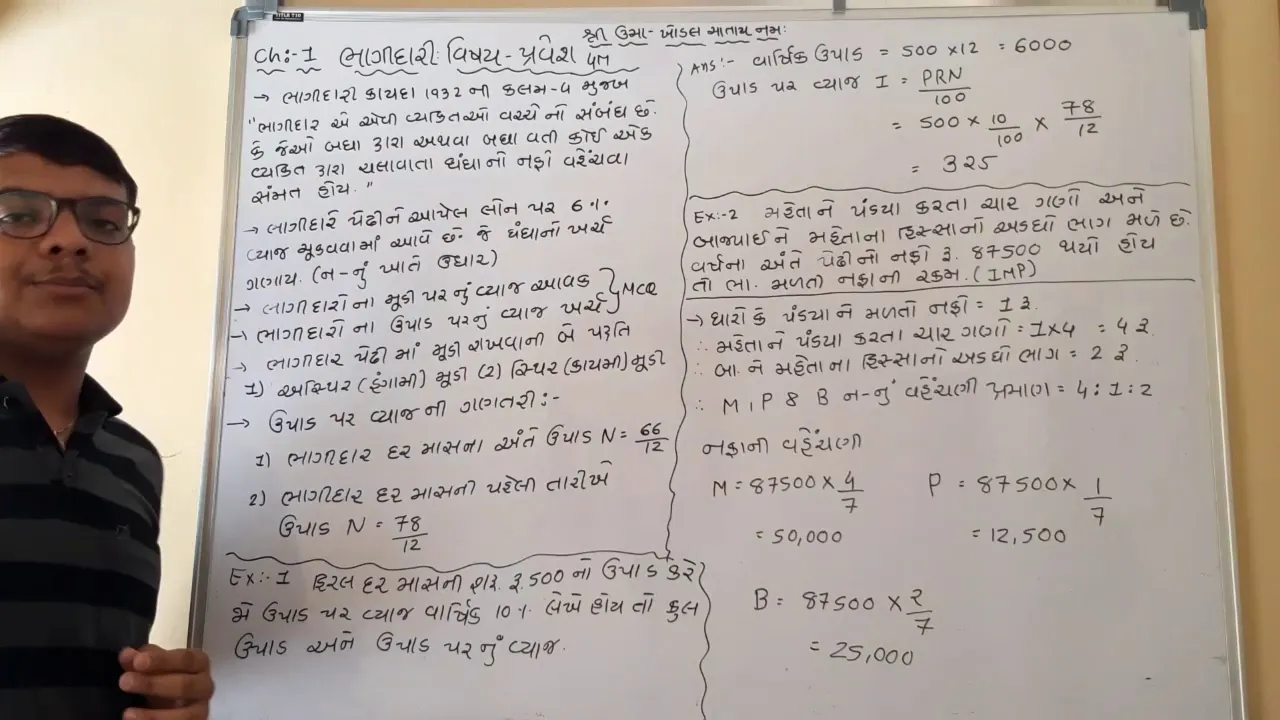 શ્રી ઉમા-ખોડલ માતાય નમઃ
Ch:-1 ભાગીદારી: વિષય-પ્રવેશ 4M
→ ભાગીદારી કાયદા 1932 ની કલમ-4 મુજબ
"ભાગીદાર એ એવી વ્યકિતઓ વચ્ચે નો સંબંધ છે.
કે જેઓ બધા દ્વારા અથવા બધા વતી કોઈ એક
વ્યકિત દ્વારા ચલાવાતા ધંધાનો નફો વહેંચવા
સંમત હોય."
→ ભાગીદારે પેઢીને આપેલ લોન પર 6%
વ્યાજ ચૂકવવામાં આવે છે. જે ધંધાનો ખર્ચ
ગણાય. (ન-નું ખાતે ઉધાર)
→ ભાગીદારોના મૂડી પરનું વ્યાજ આવક
→ ભાગીદારો ના ઉપાડ પરનું વ્યાજ ખર્ચ } MCQ
→ ભાગીદાર પેઢી માં મૂડી રાખવાની બે પદ્ધતિ
1) અસ્થિર (હંગામી) મૂડી (2) સ્થિર (કાયમી) મૂડી
→ ઉપાડ પર વ્યાજ ની ગણતરી:-
1) ભાગીદાર દર માસના અંતે ઉપાડ N = 66/12
2) ભાગીદાર દર માસની પહેલી તારીખે
ઉપાડ N = 78/12
Ex:-1 હિરલ દર માસની શરૂ. રૂ.500 નો ઉપાડ કરે
જો ઉપાડ પર વ્યાજ વાર્ષિક 10% લેખે હોય તો કુલ
ઉપાડ અને ઉપાડ પરનું વ્યાજ.
Ans:- વાર્ષિક ઉપાડ = 500 × 12 = 6000
ઉપાડ પર વ્યાજ I = PRN/100
= 500 × 10/100 × 78/12
= 325
Ex:-2 મહેતાને પંડયા કરતા ચાર ગણો અને
બાજપાઈને મહેતાના હિસ્સાનો અડધો ભાગ મળે છે.
વર્ષના અંતે પેઢીનો નફો રૂ. 87500 થયો હોય
તો ભા. મળતી નફાની રકમ. (IMP)
→ ધારો કે પંડયા ને મળતો નફો = 1 રૂ.
∴ મહેતાને પંડયા કરતા ચાર ગણો = 1×4 = 4 રૂ.
∴ બા. ને મહેતાના હિસ્સાનો અડધો ભાગ = 2 રૂ.
∴ M, P & B ન-નું વહેંચણી પ્રમાણ = 4:1:2
નફાની વહેંચણી
M = 87500 × 4/7 P = 87500 × 1/7
= 50,000 = 12,500
B = 87500 × 2/7
= 25,000